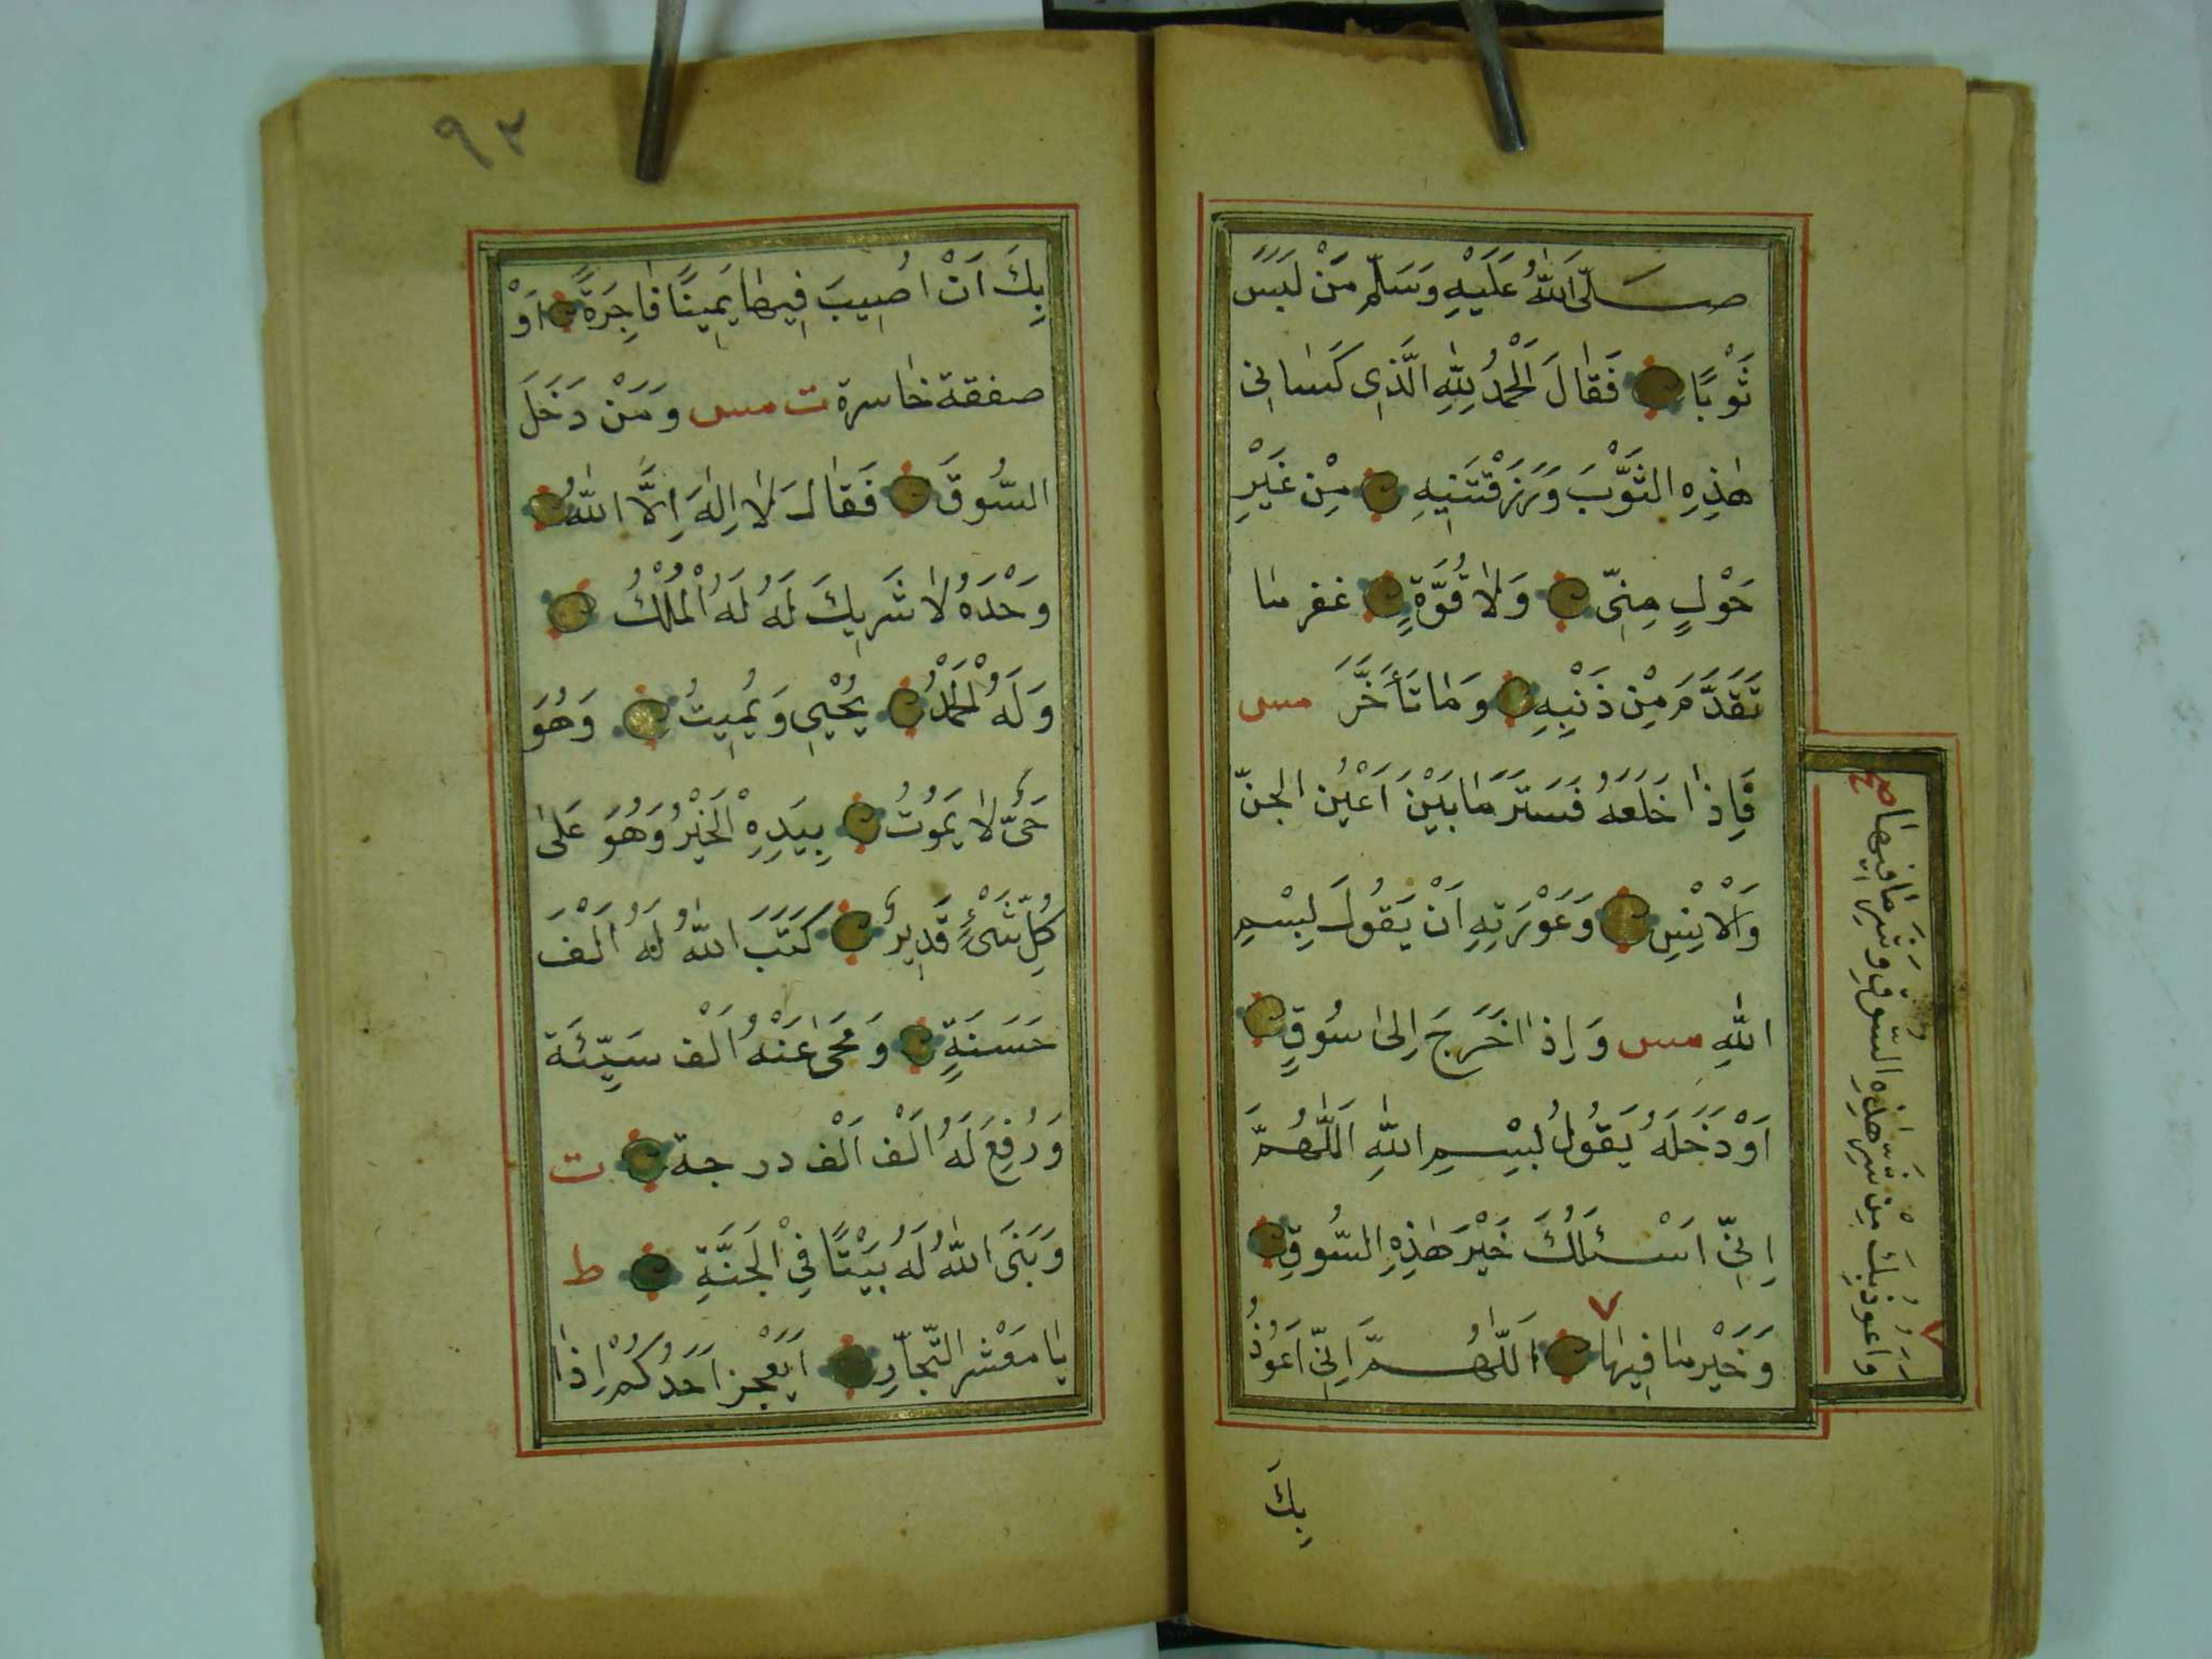 صَلَّى اللّٰهُ عَلَيْهِ وَسَلَّم مَنْ لَبِسَ
ثَوْبًا فَقَالَ اَلْحَمْدُ لِلّٰهِ الَّذِي كَسَانِي
هٰذِهِ الثَّوْبَ وَرَزَقْتَنِيهِ مِنْ غَيْرِ
حَوْلٍ مِنِّي وَلَا قُوَّةٍ غفر ما
تَقَدَّمَ مِنْ ذَنْبِهِ وَمَا تَأَخَّرَ مس
فَاِذَا خَلَعَهُ فَسَتَرَ مَا بَيْنَ اَعْيُنِ الجنّ
وَالْاِنْسِ وَعَوْرَتِهِ اَنْ يَقُولَ بِسْمِ
اللّٰهِ مس وَاِذَا خَرَجَ اِلَى سُوقٍ
اَوْ دَخَلَهُ يَقُولُ بِسْمِ اللّٰهِ اَللّٰهُمَّ
اِنِّي اَسْئَلُكَ خَيْرَ هٰذِهِ السُّوقِ
وَخَيْرَ مَا فِيهَا ٧ اَللّٰهُمَّ اِنِّي اَعُوذُ
٧ وَاَعُوذُ بِكَ مِنْ شَرِّ هٰذِهِ السُّوقِ وَشَرِّ مَا فِيهَا صح
بِكَ
٩٣
بِكَ اَنْ اُصِيبَ فِيهَا يَمِينًا فَاجِرَةً اَوْ
صفقة خاسرة ت مس وَمَنْ دَخَلَ
السُّوقَ فَقَالَ لَا اِلٰهَ اِلَّا اللّٰهُ
وَحْدَهُ لَا شَرِيكَ لَهُ لَهُ الْمُلْكُ
وَلَهُ الْحَمْدُ يُحْيِي وَيُمِيتُ وَهُوَ
حَيٌّ لَا يَمُوتُ بِيَدِهِ الْخَيْرُ وَهُوَ عَلَى
كُلِّ شَيْءٍ قَدِيرٌ كَتَبَ اللّٰهُ لَهُ اَلْفَ
حَسَنَةٍ وَمَحَى عَنْهُ اَلْف سَيِّئَة
وَرُفِعَ لَهُ اَلْف اَلْف درجة ت
وَبَنَى اللّٰهُ لَهُ بَيْتًا فِي الْجَنَّةِ ط
يَا مَعْشَر التُّجَّارِ اَيَعْجِز اَحَدُكُمْ اِذَا